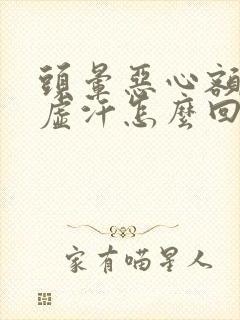 頭暈惡心額
虛汗怎麼回
家有喵星人